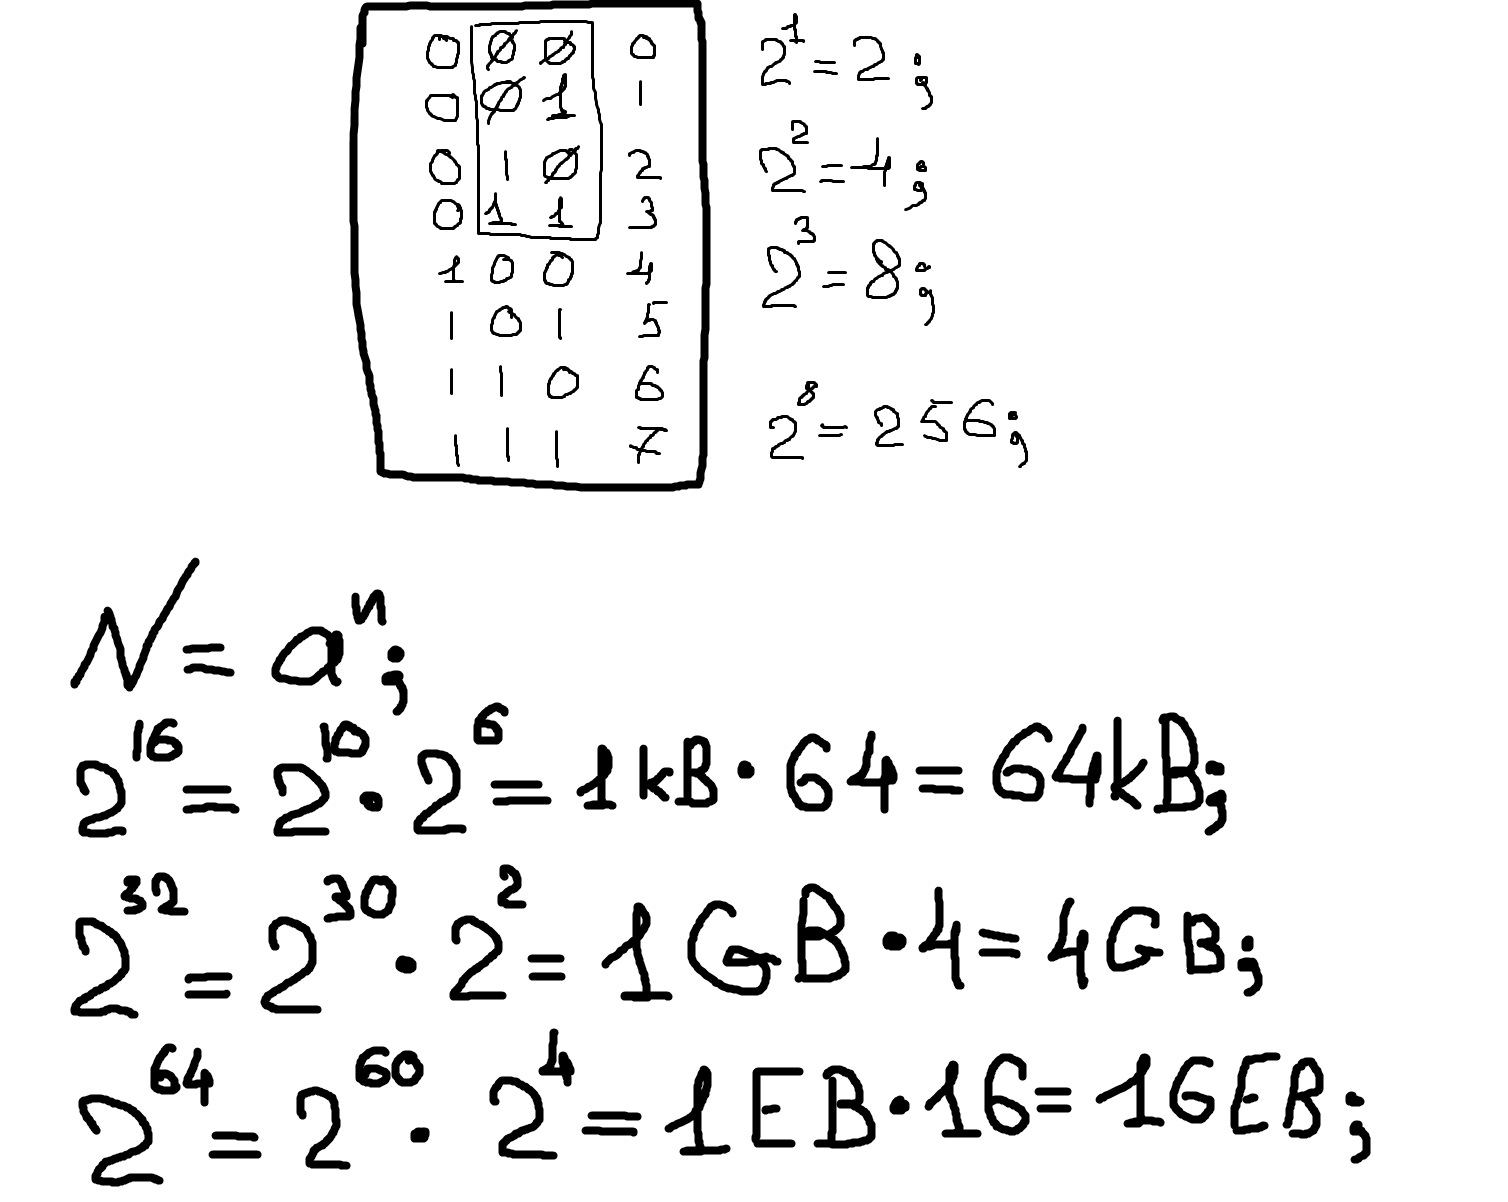 0 0 0 0
0 0 1 1
0 1 0 2
0 1 1 3
1 0 0 4
1 0 1 5
1 1 0 6
1 1 1 7
2¹ = 2;
2² = 4;
2³ = 8;
2⁸ = 256;
N = aⁿ;
2¹⁶ = 2¹⁰ · 2⁶ = 1kB · 64 = 64kB;
2³² = 2³⁰ · 2² = 1GB · 4 = 4GB;
2⁶⁴ = 2⁶⁰ · 2⁴ = 1EB · 16 = 16EB;